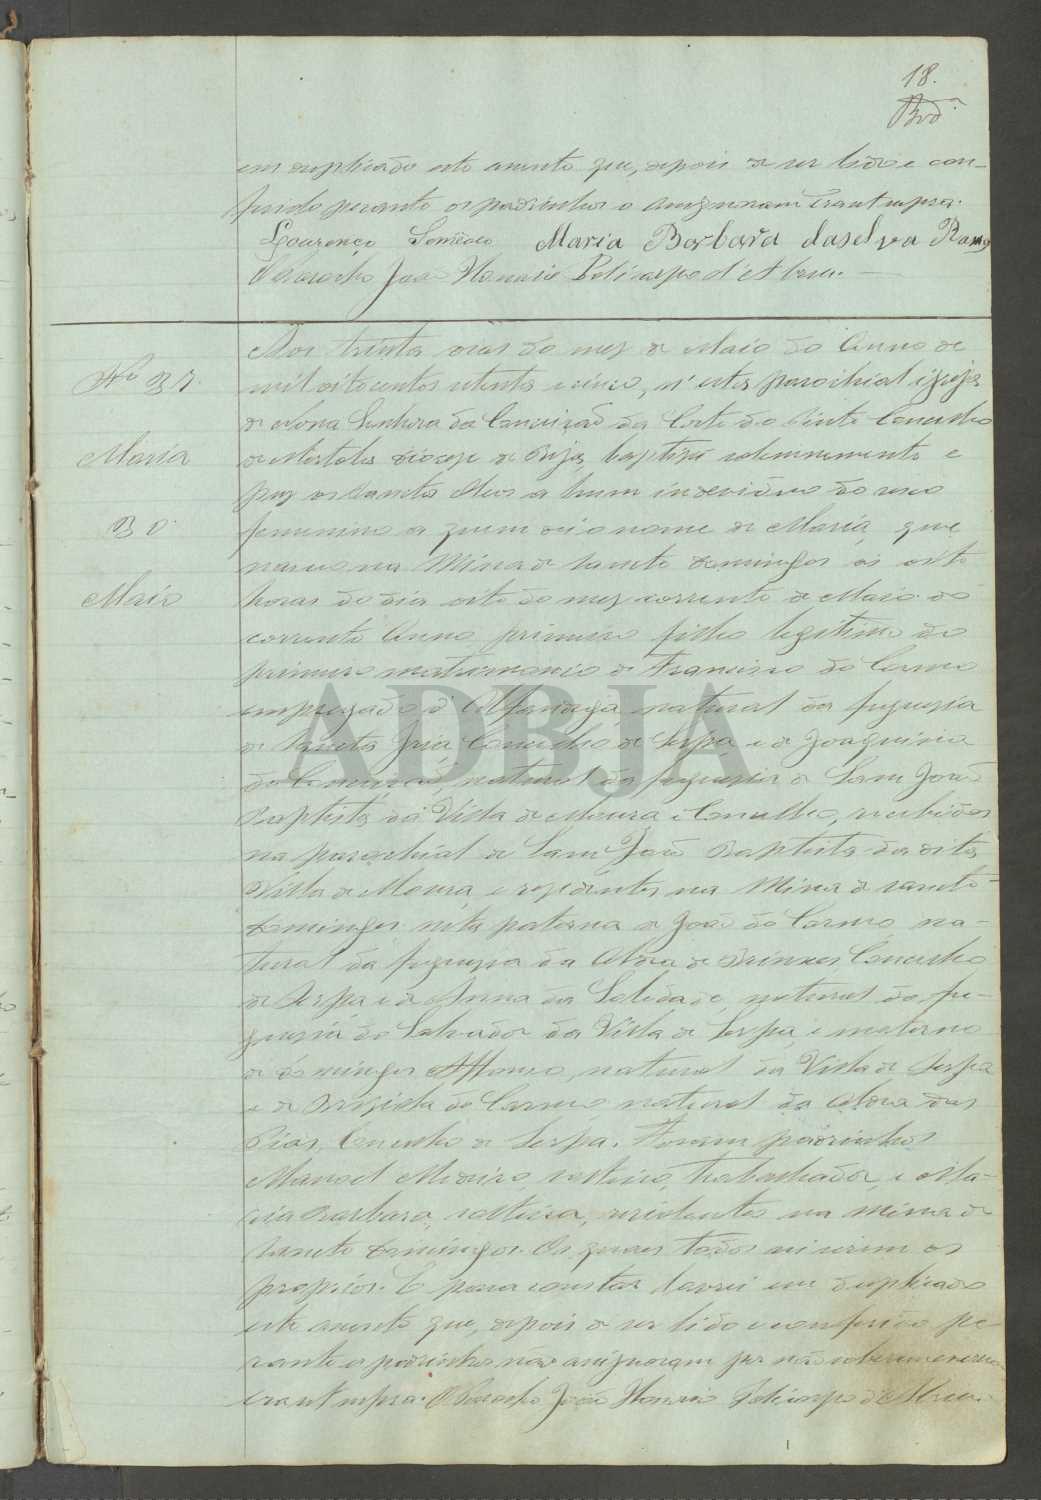 18.
em duplicado este assento que, depois de ser lido e con-
ferido perante os padrinhos o assignaram Era ut supra.
Lourenço Maria Barbara da Selva Ramos
O Parocho João Policarpo d'Abreu.
Aos trinta dias do mez de Maio do Anno de
Nº 37.
mil oitocentos setenta e cinco, n'esta parochial igreja
de Nossa Senhora da Conceição da Corte do Pinto Concelho
Maria
de Mertola, diocese de Beja, baptizei solemnemente e
puz os Sanctos Oleos a hum individuo do sexo
30
femenino a quem dei o nome de Maria, que
nasceu na Mina de Sancto Domingos ás oito
Maio
horas do dia oito do mez corrente de Maio do
corrente Anno, primeiro filho legitimo do
primeiro matrimonio de Francisco do Carmo
empregado d'Alfandega, natural da freguesia
de Sancta Iria Concelho de Serpa e de Joaquina
da Conceição, natural da freguesia de Sam João
Baptista da Villa de Moura e Concelho, recebidos
na parochial de Sam João Baptista da dita
Villa de Moura, e residentes na Mina de Sancto
Domingos neta paterna de João do Carmo na-
tural da freguesia da Aldea de Brinxes, Concelho
de Serpa e de Anna da Soledade, natural da fre-
guesia do Salvador da Villa de Serpa, e materna
de Domingos Affonso, natural da Villa de Serpa
e de Brigida do Carmo natural da Aldea das
Pias, Concelho de Serpa. Foram padrinhos
Manoel solteiro, trabalhador, e Ma-
ria Barbara, solteira, residentes na Mina de
Sancto Domingos. Os quaes todos sei serem os
proprios. E para constar lavrei em duplicado
este assento que, depois de ser lido e conferido pe-
rante os padrinhos não assignaram por não saberem escrever
Era ut supra. O Parocho João Policarpo d'Abreu.
ADBJA